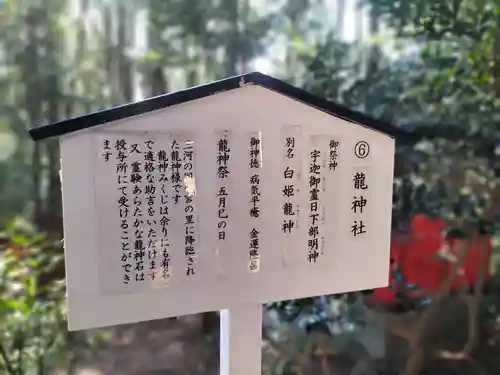 ⑥ 龍神社
御祭神
宇迦御霊日下部明神
別名 白姫龍神
御神徳 病気平癒 金運
龍神祭 五月巳の日
三河の の里に降臨され
た龍神様です
龍神みくじは余りにも有名
で適格な助言をいただけます
又 霊験あらたかな龍神石は
授与所にて受けることができ
ます